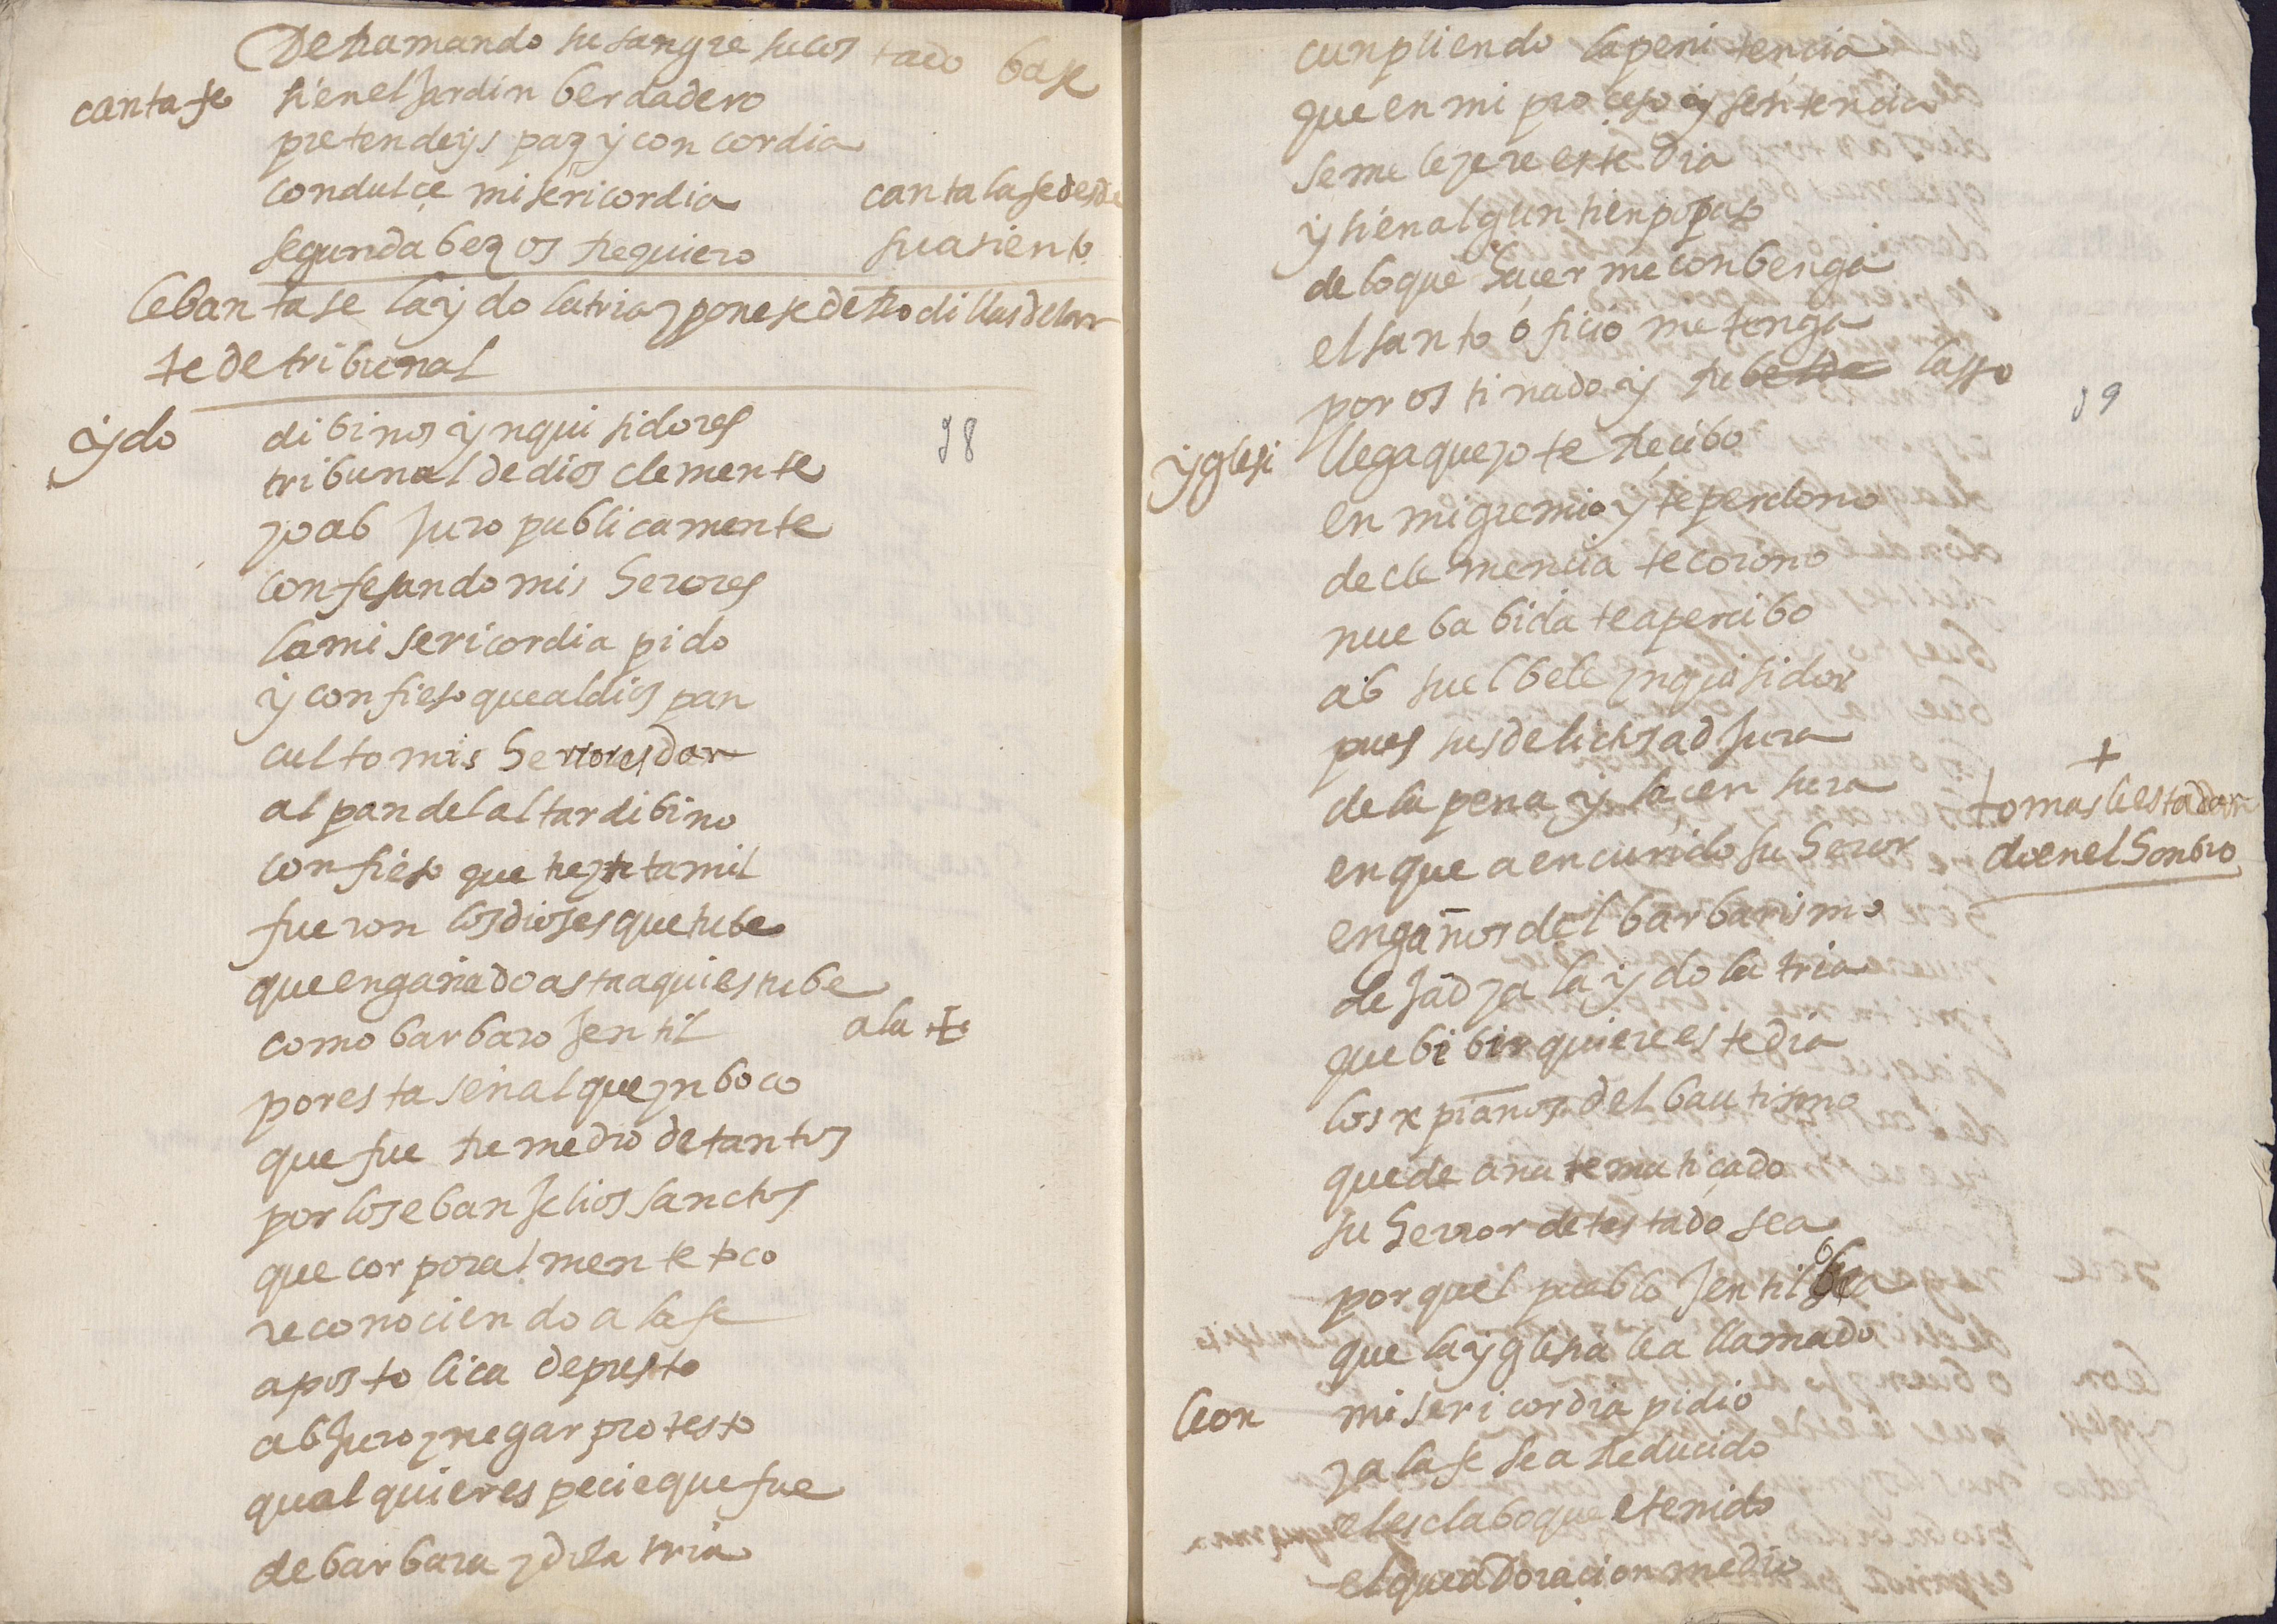 Derramando su sangre su cos tado base
canta fe si en el jardin berdadero
pretendeys paz y con cordia
con dulçe misericordia canta la fe desde
segunda bez os rrequiero su asiento
lebantase la ydolatria y ponese de rrodillas delan
te de tribunal
ydo dibinos ynquisidores 98
tribunal de dios clemente
yo ab juro publicamente
confesando mis herores
la misericordia pido
y confieso que al dios pan
culto mis herrores dan
al pan del altar dibino
confieso que treynta mil
fueron los dioses que tube
que engañado asta aqui estube
como barbaro jentil a la +
por esta señal que ynboco
que fue rremedio de tantos
por los ebanjelios sanctos
que corporalmente toco
reconociendo a la fe
apostolica de presto
abjuro y negar protesto
qualquier especie que fue
de barbara ydolatria
cunpliendo la penitencia
que en mi proçeso y sentencia
se me leyere este dia
y si en algun tienpo paso
de lo que hacer me conbenga
el santo oficio me tenga
por ostinado y rrebelde lasso
99
yglesi llega que yo te rrecibo
en mi gremio y te perdono
de clemencia te corono
nueba bida te apercibo
absuelbele ynquisidor
pues sus delictos adjura
de la pena y la çensura +
en que a encurrido su heror tomas le estadar
engaños del barbarismo doen el honbro
dejad ya la ydolatria
que bibir quiere este dia
los xpianos del bautismo
quede anatematiçado
su herror detestado sea
por quel pueblo jentil bea
que la yglesia le a llamado
leon misericordia pidio
ya la fe se a rreducido
el esclabo que e tenido
el que adoraçion me dio